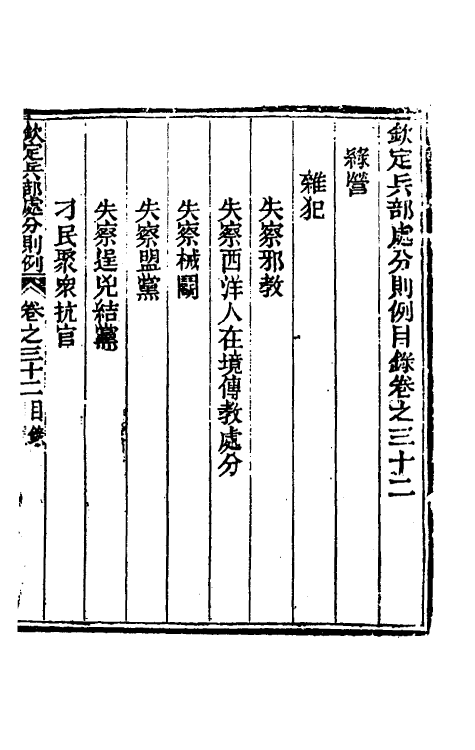 欽定兵部處分則例目錄卷之三十二
綠營
雜犯
失察邪教
失察西洋人在境傳教處分
失察械鬭
失察盟黨
失察逞兇結黨
刁民聚衆抗官
欽定兵部處分則例 卷之三十二 目錄